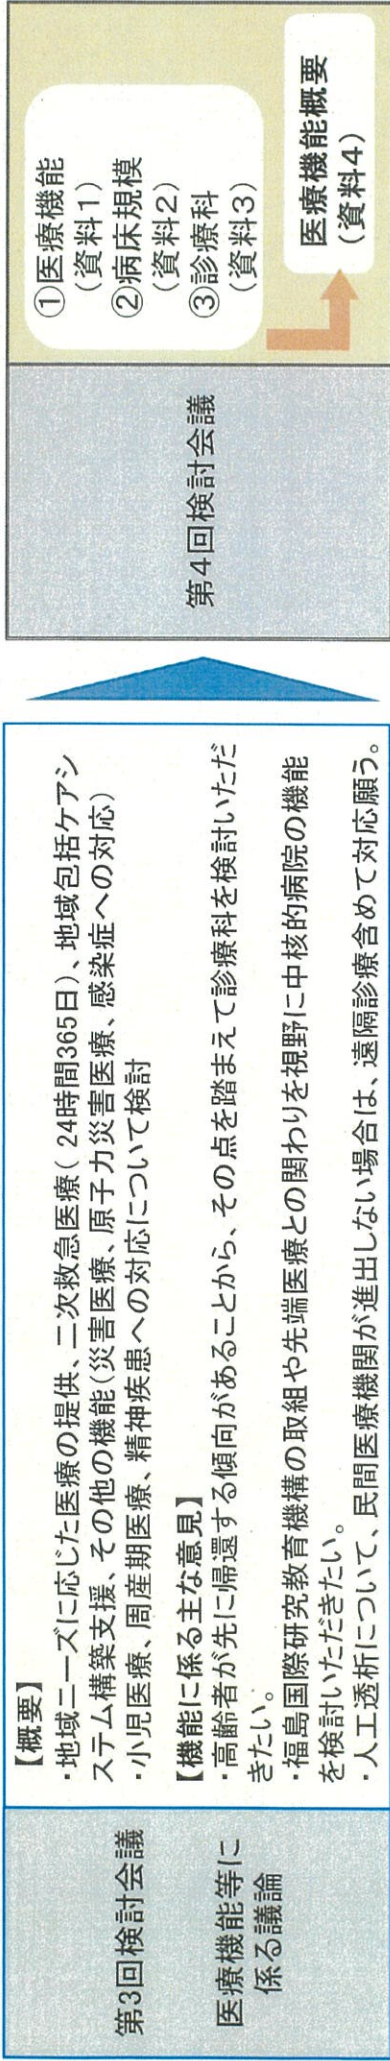 第3回検討会議
医療機能等に
係る議論
【概要】
・地域ニーズに応じた医療の提供、二次救急医療(24時間365日)、地域包括ケアシ
ステム構築支援、その他の機能(災害医療、原子力災害医療、感染症への対応)
・小児医療、周産期医療、精神疾患への対応について検討
【機能に係る主な意見】
・高齢者が先に帰還する傾向があることから、その点を踏まえて診療科を検討いただ
きたい。
・福島国際研究教育機構の取組や先端医療との関わりを視野に中核的病院の機能
を検討いただきたい。
・人工透析について、民間医療機関が進出しない場合は、遠隔診療含めて対応願う。
第4回検討会議
①医療機能
(資料1)
②病床規模
(資料2)
③診療科
(資料3)
医療機能概要
(資料4)